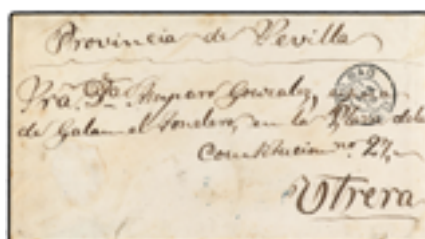 Provincia de Sevilla
Sra. Da. Amparo Gonzalez,
de Galan el tonelero, en la Plaza de la
Constitucion no. 27,
Utrera